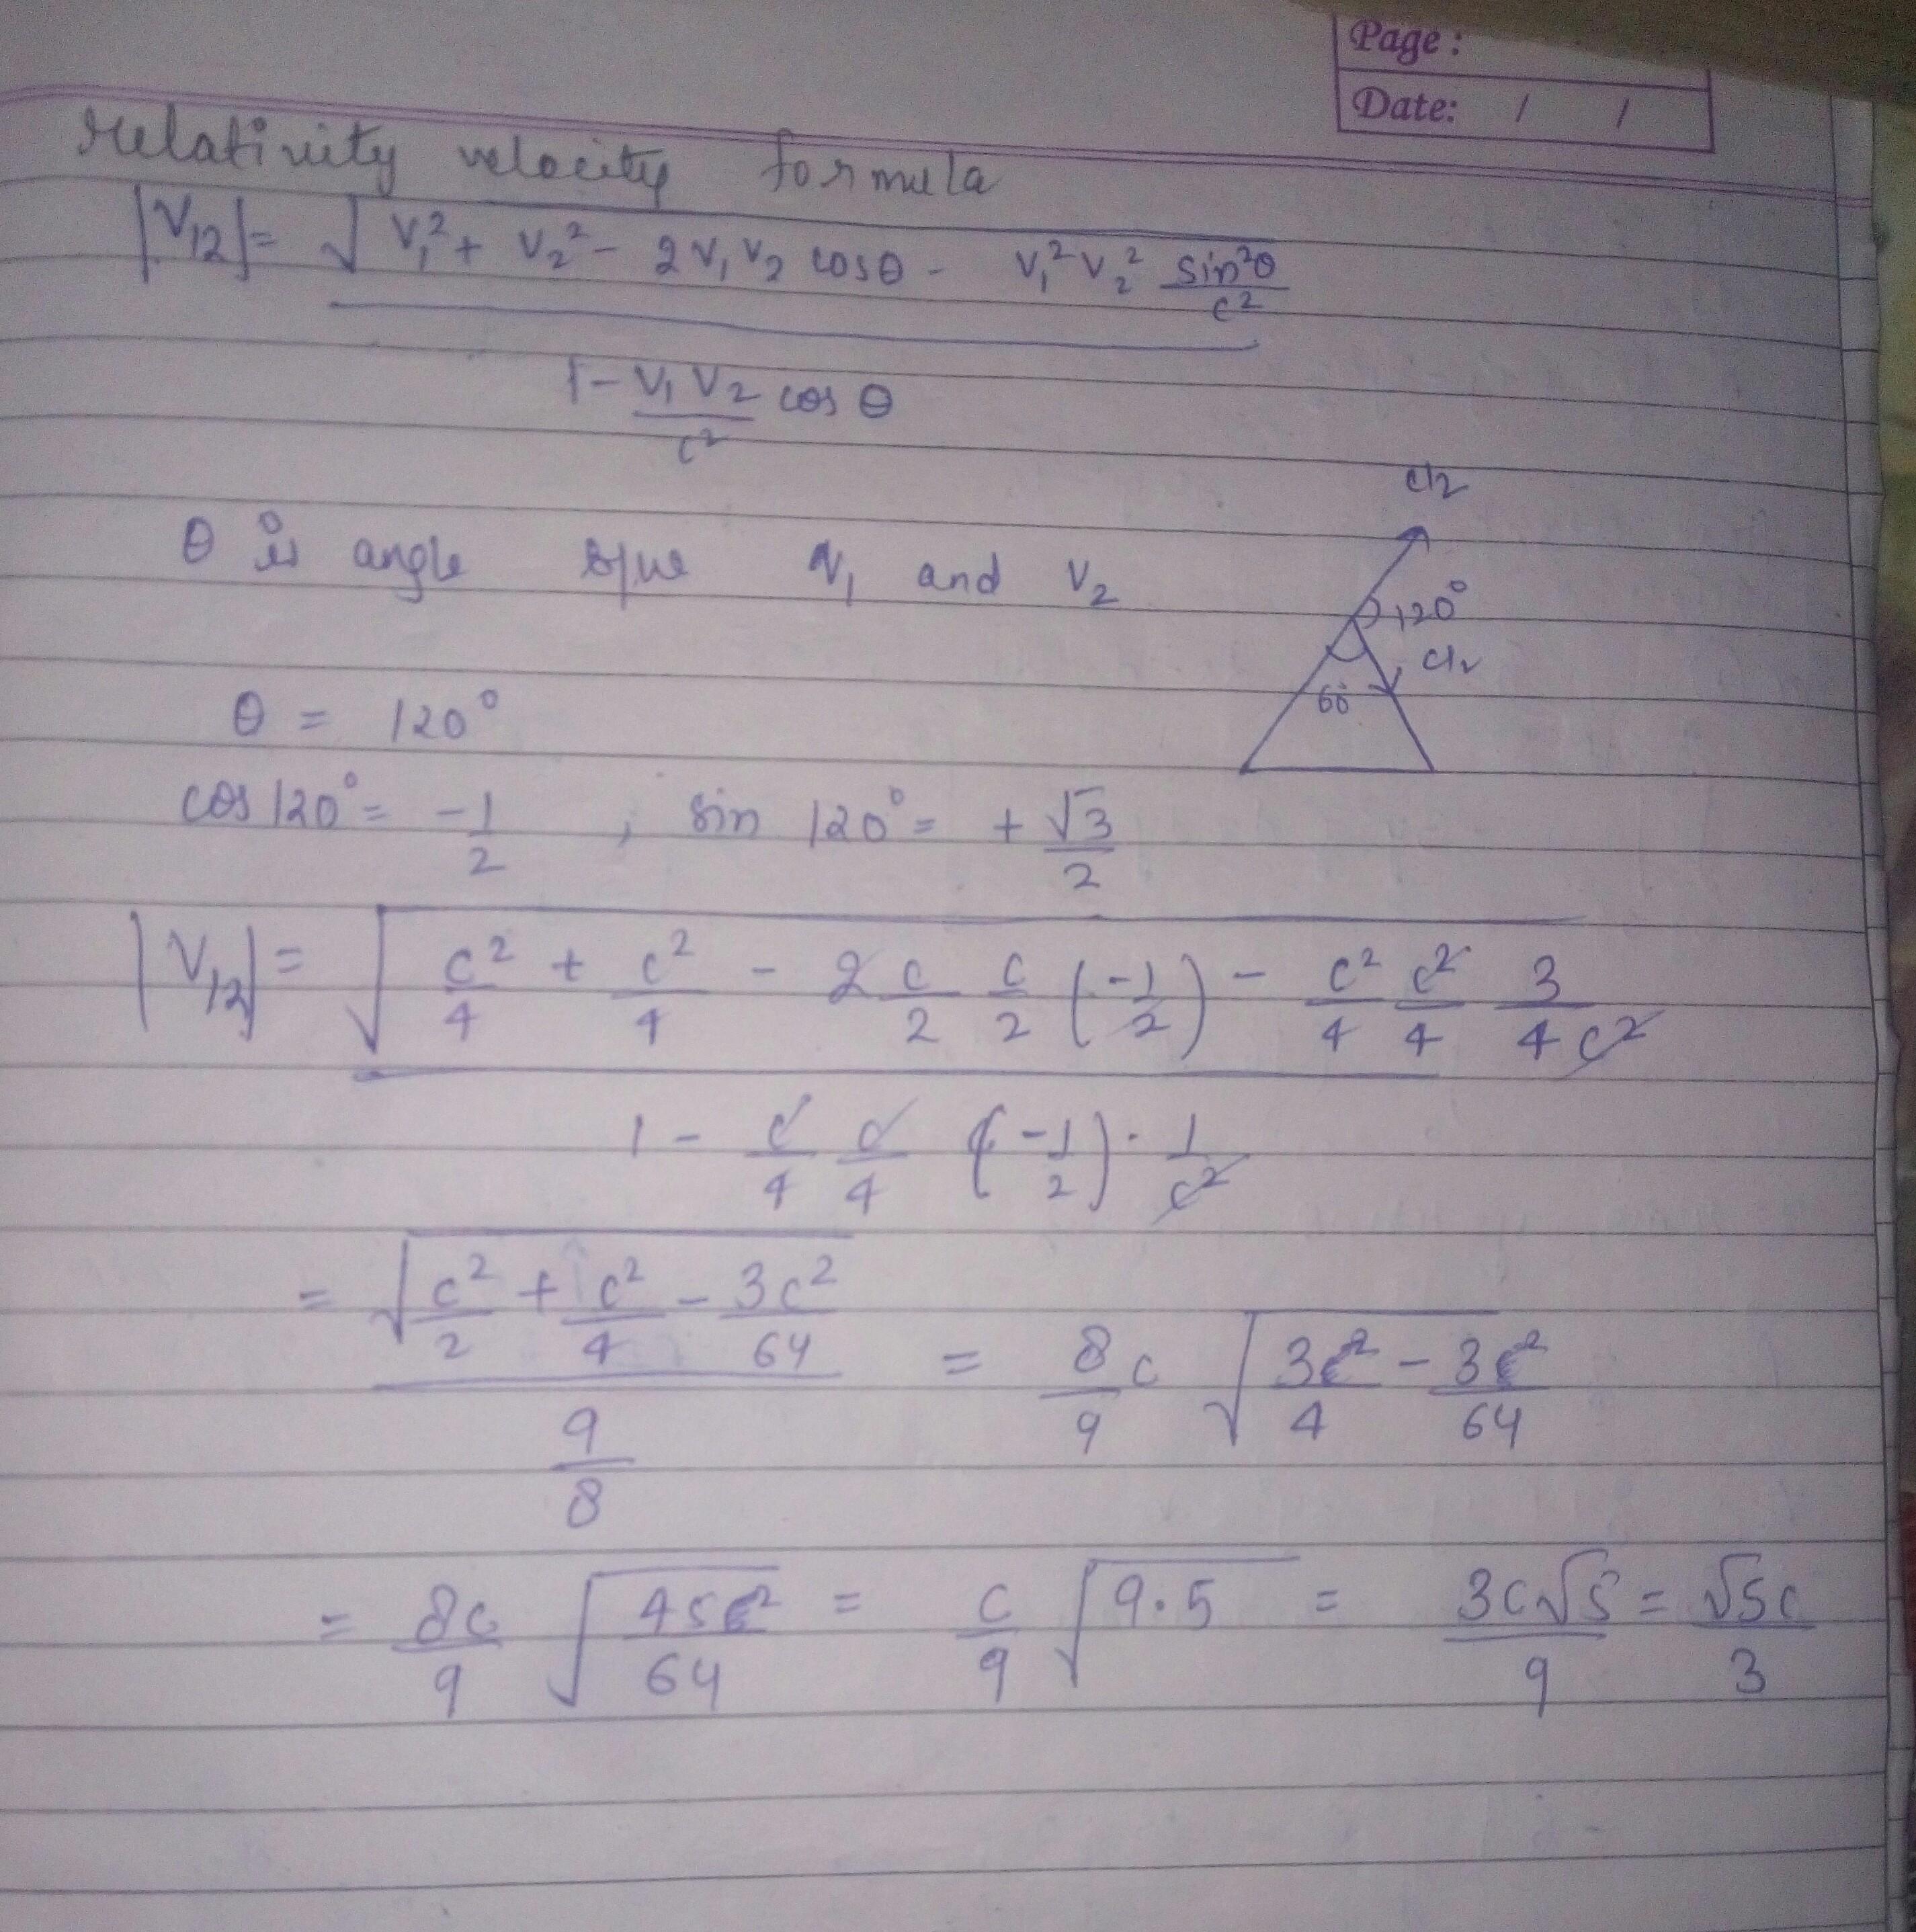 Page :
Date: / /
relativity velocity formula
|V₁₂| = √(V₁² + V₂² - 2V₁V₂ cosθ - V₁²V₂² sin²θ/c²)
1 - V₁V₂/c² cos θ
θ is angle b/w V₁ and V₂
c/2
120°
c/2
60°
θ = 120°
cos 120° = -1/2 , sin 120° = + √3/2
|V₁₂| = √(c²/4 + c²/4 - 2 c/2 c/2 (-1/2) - c²/4 c²/4 3/4c²)
1 - c/4 c/4 (-1/2) · 1/c²
= √(c²/2 + c²/4 - 3c²/64)
9/8
= 8/9 c √(3c²/4 - 3c²/64)
= 8c/9 √(45c²/64) = c/9 √(9·5) = 3c√5/9 = √5c/3